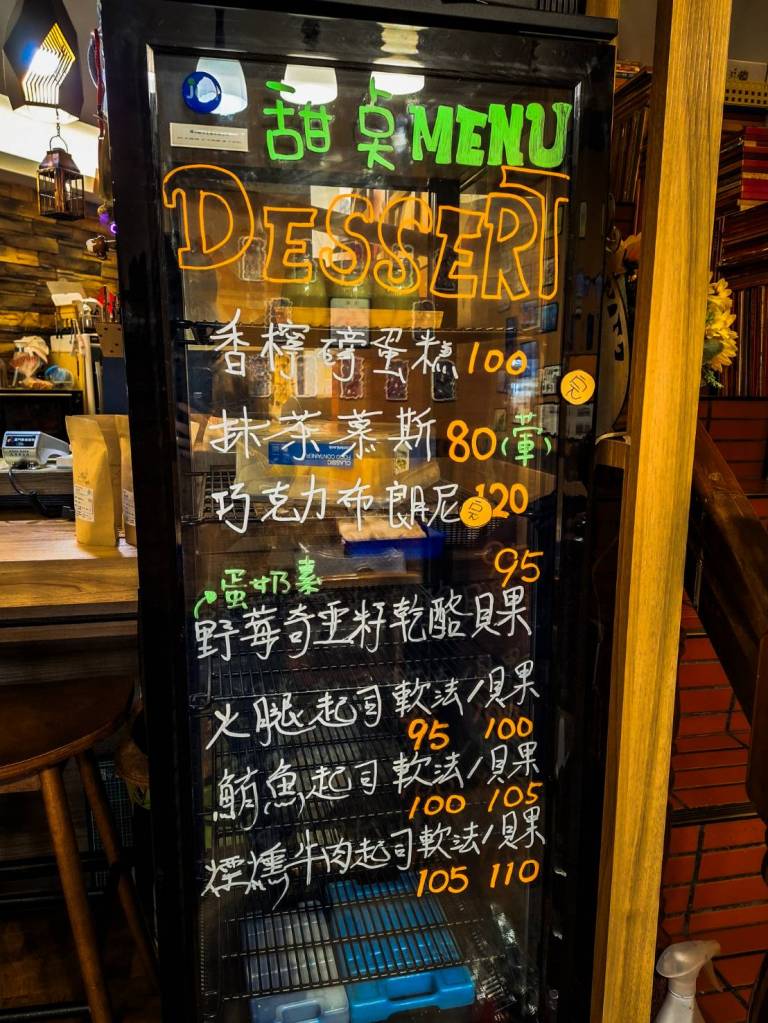 甜点MENU
DESSERT
香檸磅蛋糕100
抹茶慕斯80(葷)
巧克力布朗尼120
完
完
95
蛋奶素
野莓奇亞籽乾酪貝果
火腿起司軟法/貝果
95 100
鮪魚起司軟法/貝果
100 105
煙燻牛肉起司軟法/貝果
105 110